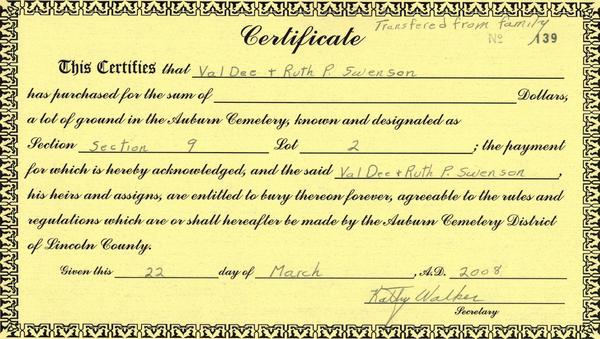 Transfered from family
Certificate
No 139
This Certifies that Val Dee + Ruth P. Swenson
has purchased for the sum of Dollars,
a lot of ground in the Auburn Cemetery, known and designated as
Section Section 9 Lot 2 ; the payment
for which is hereby acknowledged, and the said Val Dee + Ruth P. Swenson ,
his heirs and assigns, are entitled to bury thereon forever, agreeable to the rules and
regulations which are or shall hereafter be made by the Auburn Cemetery District
of Lincoln County.
Given this 22 day of March , A.D. 2008
Kathy Walker
Secretary